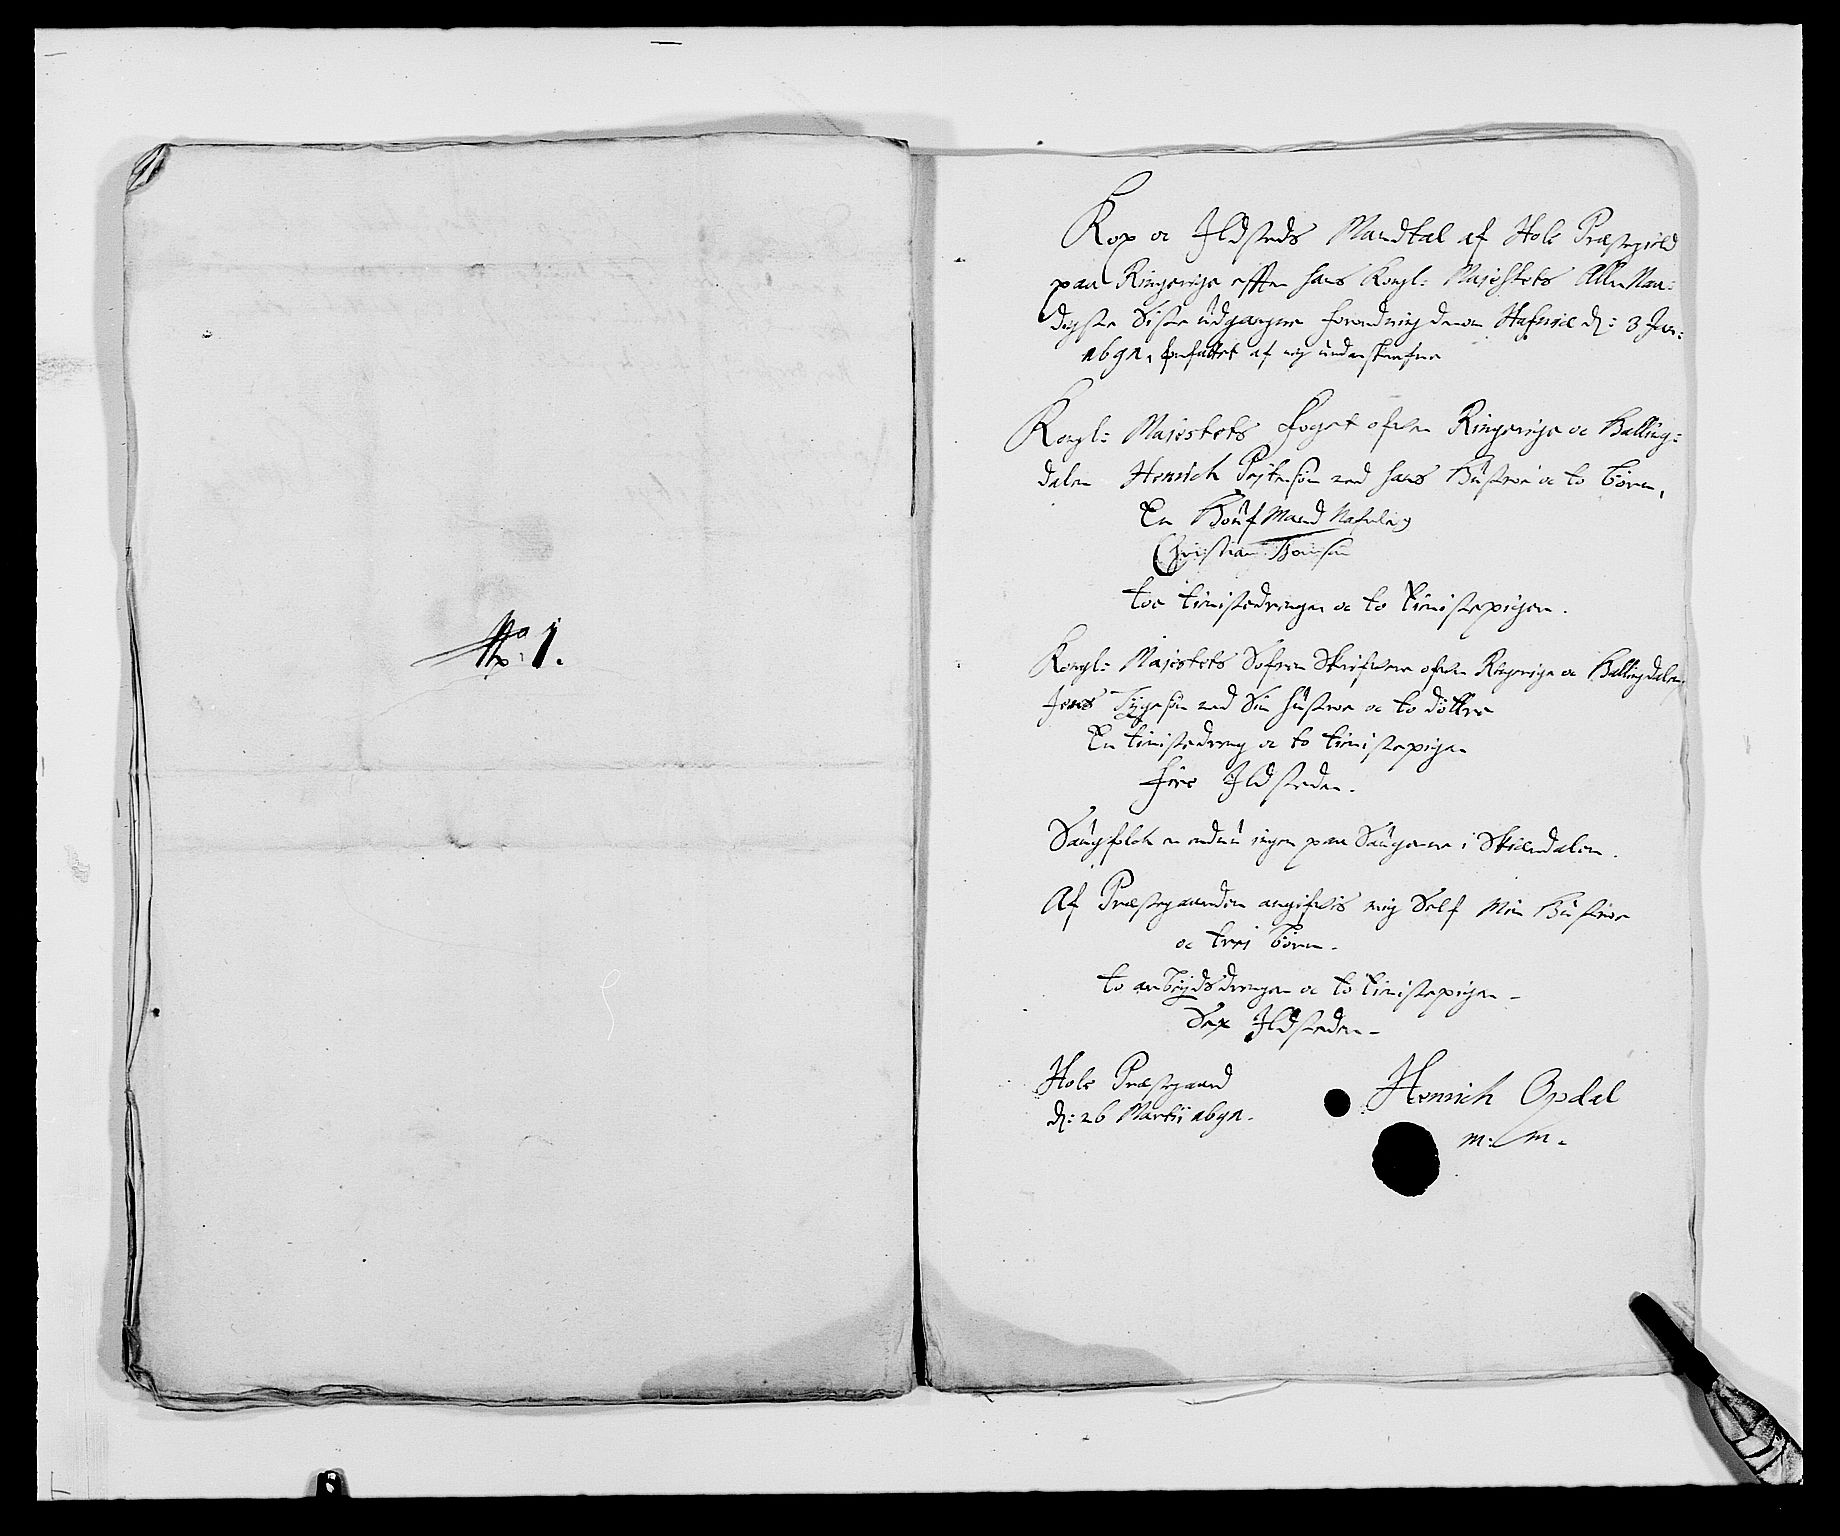 No: 1.
Kop oc Ildsteds Mandtal af Hole Præstegield
paa Ringerige effter hans Kongl: Majestets Aller Naa-
digste Siste udgangne forordning deron Hafniæ d: 3 Jan:
1691, forfattet af mig underskrefne
Kongl: Majestets Foget ofver Ringerige oc Halling-
dalen Henrich Pejtersøn med hans Hustroe oc to børn,
En Houf Mand Nafnlig
Christian
toe tienistedrenger oc to tienistepiger.
Kongl: Majestets Sofren Skrifvere ofver Ringerige oc Hallingdalen
Jens Tygesøn med Sin hustroe oc to døttre
En tienistedreng oc to tienistepiger
Fire Ildsteder.
Saugfolch er endnu ingen paa Saugerne i Skiærdalen.
Af Præstegaarden angifves mig Self Min Hustroe
oc trei børn.
to arbeydsdrenger oc to tienistepiger -
Sex Ildsteder -
Hole Præstegaard
d: 26 Martii 1691.
Henrich Opdal
m: m.